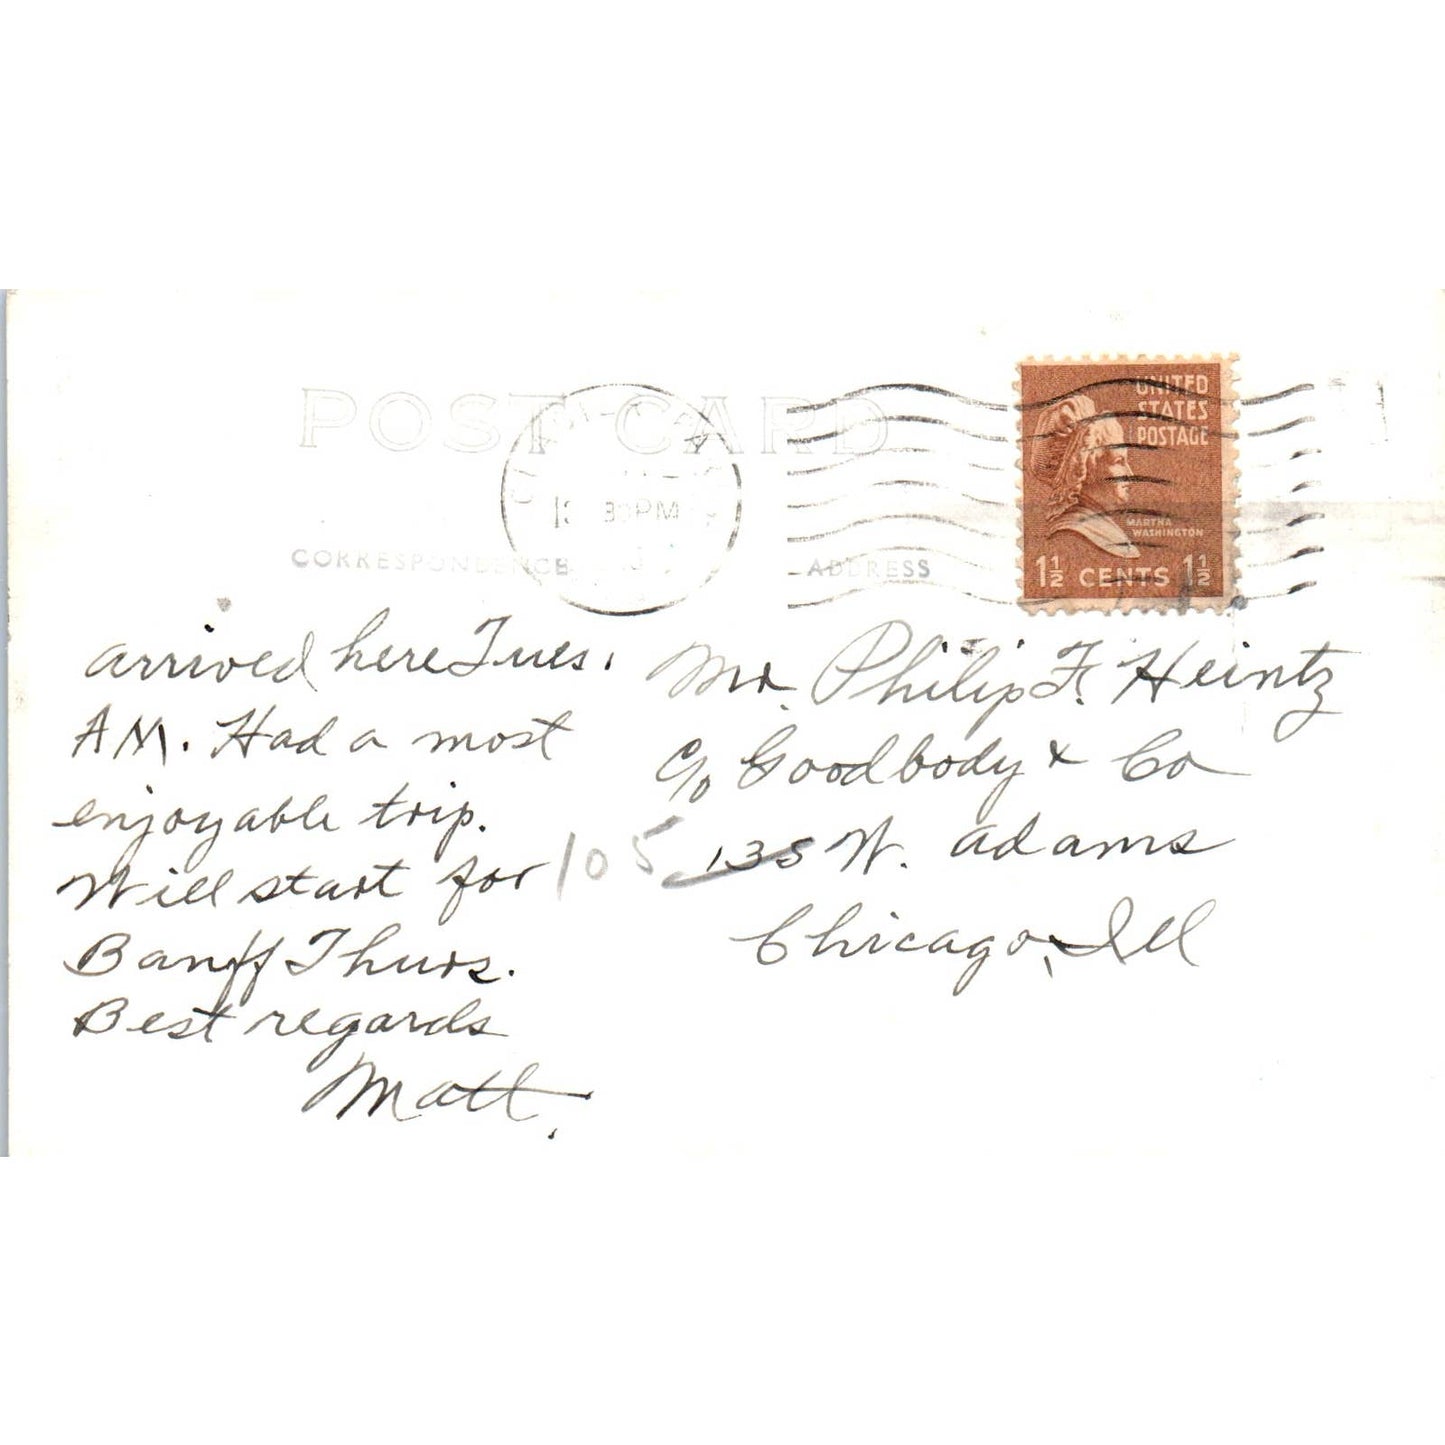 POST CARD
30 PM
CORRESPONDENCE
ADDRESS
UNITED
STATES
POSTAGE
MARTHA
WASHINGTON
1½ CENTS 1½
arrived here Tues.
AM. Had a most
enjoyable trip.
Will start for
Banff Thurs.
Best regards
Matt.
Mr. Philip F. Heintz
c/o Goodbody & Co
105 135 W. Adams
Chicago, Ill